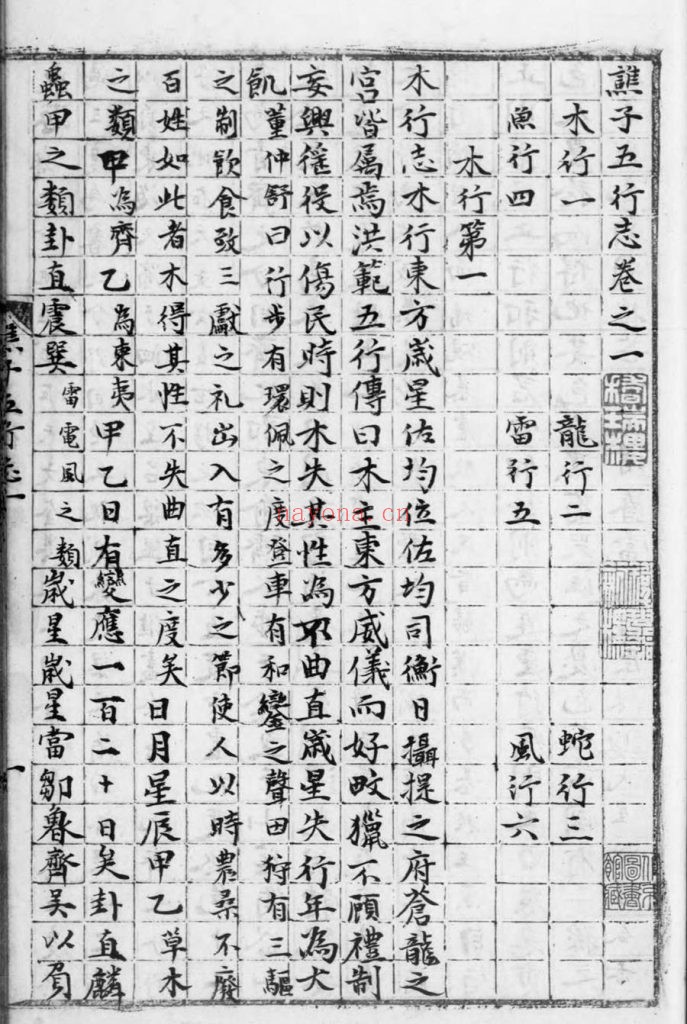 譙子五行志卷之一
木行一 龍行二 蛇行三
魚行四 雷行五 風行六
木行第一
木行志木行東方歲星佐均位佐均司衡日攝提之府蒼龍之
宮皆属焉洪範五行傳曰木主東方威儀而好畋獵不顧禮制
妄興徭役以傷民時則木失其性為不曲直歲星失行年為大
飢董仲舒曰行步有環佩之度登車有和鑾之聲田狩有三驅
之制飲食致三獻之礼出入有多少之節使人以時農桑不廢
百姓如此者木得其性不失曲直之度矣日月星辰甲乙草木
之類甲為齊乙為東夷甲乙日有變應一百二十日矣卦直麟
蟲甲之類卦直震巽雷電風之類歲星歲星當鄒魯齊吳以
譙子五行志
一
nayona.cn